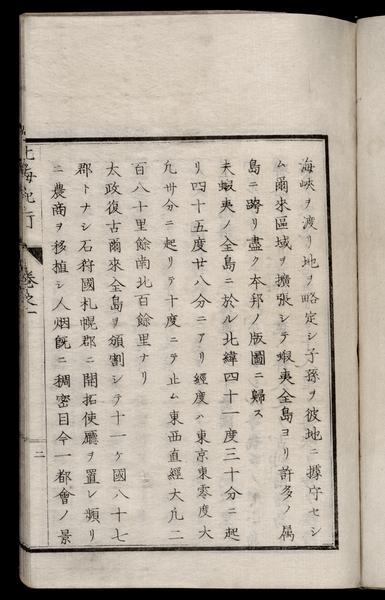 海峽ヲ渡リ地ヲ略定シ子孫ヲ彼地ニ據守セシ
ム爾來區域ヲ擴張シテ蝦夷全島ヨリ許多ノ属
島ニ跨リ盡ク本邦ノ版圖ニ歸ス
夫蝦夷ノ全島ニ於ル北緯四十一度三十分ニ起
リ四十五度廿八分ニアリ經度ハ東京東零度大
九卅分ニ起リテ十度ニテ止ム東西直經大凢二
百八十里餘南北百餘里ナリ
太政復古爾來全島ヲ頒割シテ十一ケ國八十七
郡トナシ石狩國札幌郡ニ開拓使廳ヲ置シ頻リ
ニ農商ヲ移植シ人烟旣ニ稠密目今一都會ノ景
北海紀行 卷之一
二